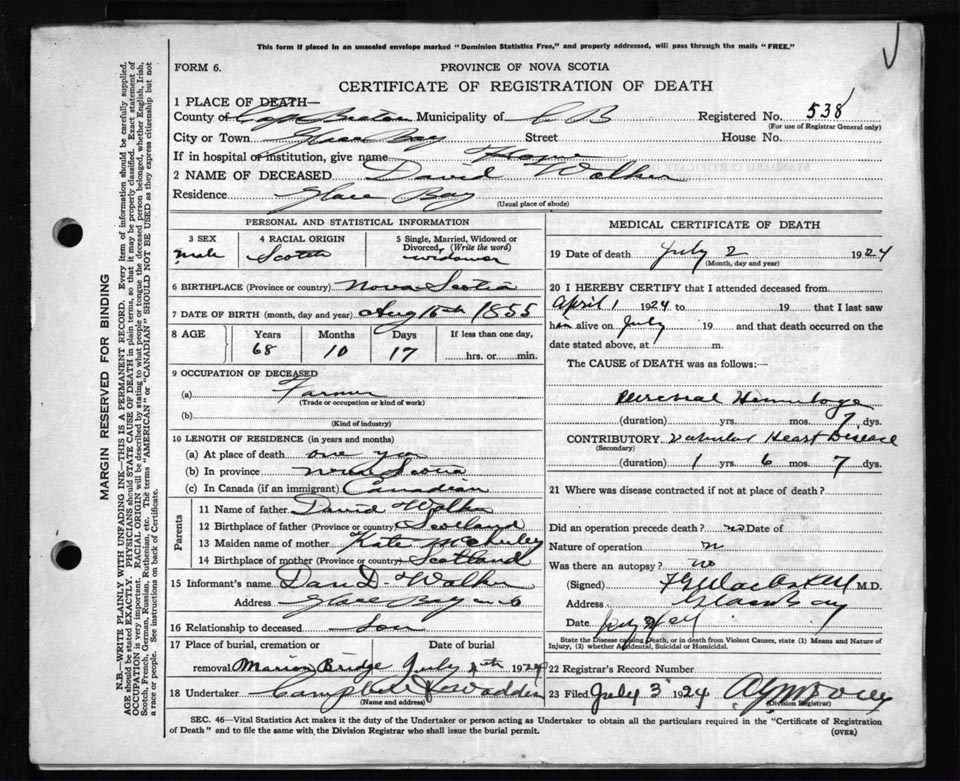 This form if placed in an unsealed envelope marked "Dominion Statistics Free," and properly addressed, will pass through the mails "FREE."
FORM 6.
PROVINCE OF NOVA SCOTIA
CERTIFICATE OF REGISTRATION OF DEATH
1 PLACE OF DEATH—
County of Cape Breton Municipality of C B Registered No. 538
(For use of Registrar General only)
City or Town Glace Bay Street House No.
If in hospital or institution, give name
2 NAME OF DECEASED David Walker
Residence Glace Bay
(Usual place of abode)
PERSONAL AND STATISTICAL INFORMATION
3 SEX 4 RACIAL ORIGIN 5 Single, Married, Widowed or Divorced (Write the word)
male Scotch widower
6 BIRTHPLACE (Province or country) Nova Scotia
7 DATE OF BIRTH (month, day and year) Aug 15th 1855
8 AGE Years Months Days If less than one day,
68 10 17 hrs. or min.
9 OCCUPATION OF DECEASED
(a) Farmer
(Trade or occupation or kind of work)
(b)
(Kind of industry)
10 LENGTH OF RESIDENCE (in years and months)
(a) At place of death one year
(b) In province Nova Scotia
(c) In Canada (if an immigrant) Canadian
Parents
11 Name of father David Walker
12 Birthplace of father (Province or country) Scotland
13 Maiden name of mother Kate
14 Birthplace of mother (Province or country) Scotland
15 Informant's name Dan D. Walker
Address Glace Bay
16 Relationship to deceased son
17 Place of burial, cremation or Date of burial
removal Marion Bridge July 1924
18 Undertaker Campbell
(Name and address)
MEDICAL CERTIFICATE OF DEATH
19 Date of death July 2 1924
(Month, day and year)
20 I HEREBY CERTIFY that I attended deceased from
April 1 1924 to 19 that I last saw
him alive on July 19 and that death occurred on the
date stated above, at m.
The CAUSE of DEATH was as follows:—
(duration) yrs. mos. 7 dys.
CONTRIBUTORY Valvular Heart Disease
(Secondary)
(duration) 1 yrs. 6 mos. 7 dys.
21 Where was disease contracted if not at place of death?
Did an operation precede death? no Date of
Nature of operation
Was there an autopsy? no
(Signed) M.D.
Address Glace Bay
Date
State the Disease causing Death, or in death from Violent Causes, state (1) Means and Nature of Injury, (2) whether Accidental, Suicidal or Homicidal.
22 Registrar's Record Number
23 Filed July 3 1924
(Division Registrar)
SEC. 46—Vital Statistics Act makes it the duty of the Undertaker or person acting as Undertaker to obtain all the particulars required in the "Certificate of Registration
of Death" and to file the same with the Division Registrar who shall issue the burial permit. (OVER)
MARGIN RESERVED FOR BINDING
N.B.—WRITE PLAINLY WITH UNFADING INK—THIS IS A PERMANENT RECORD. Every item of information should be carefully supplied.
AGE should be stated EXACTLY. PHYSICIANS should STATE CAUSE OF DEATH in plain terms, so that it may be properly classified. Exact statement of
OCCUPATION is very important. RACIAL ORIGIN will be described by stating to what people or tongue the deceased person belonged, whether English, Irish,
Scotch, French, German, Russian, Ruthenian, etc. The terms "AMERICAN" or "CANADIAN" SHOULD NOT BE USED as they express citizenship but not
a race or people. See instructions on back of Certificate.